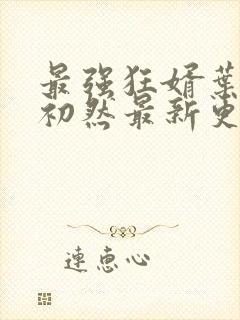 最强狂婿葉
初然最新更
連恵心